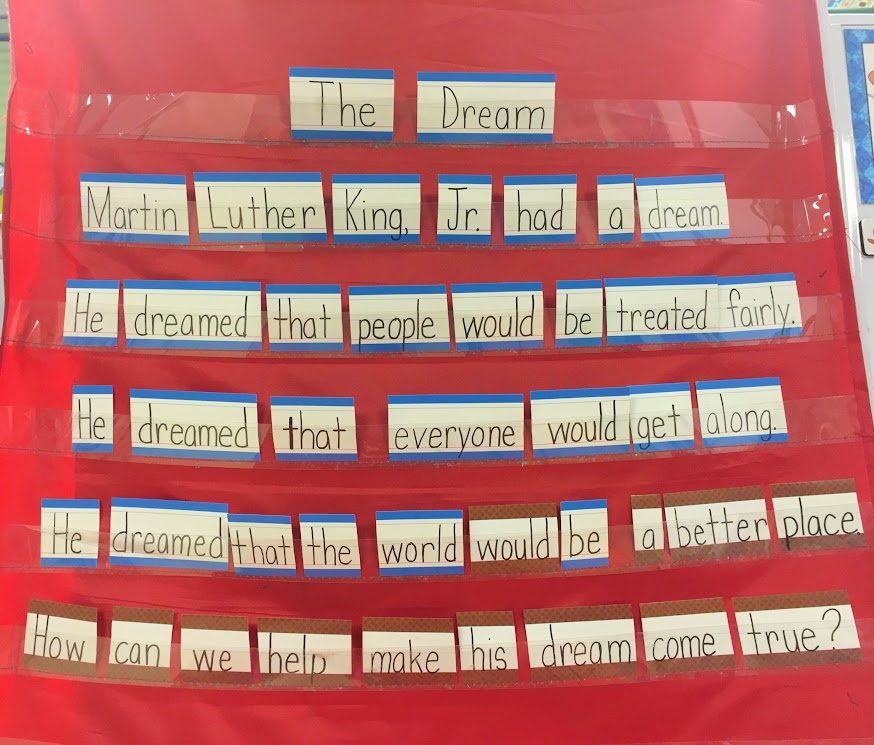 The Dream
Martin Luther King, Jr. had a dream.
He dreamed that people would be treated fairly.
He dreamed that everyone would get along.
He dreamed that the world would be a better place
How can we help make his dream come true?